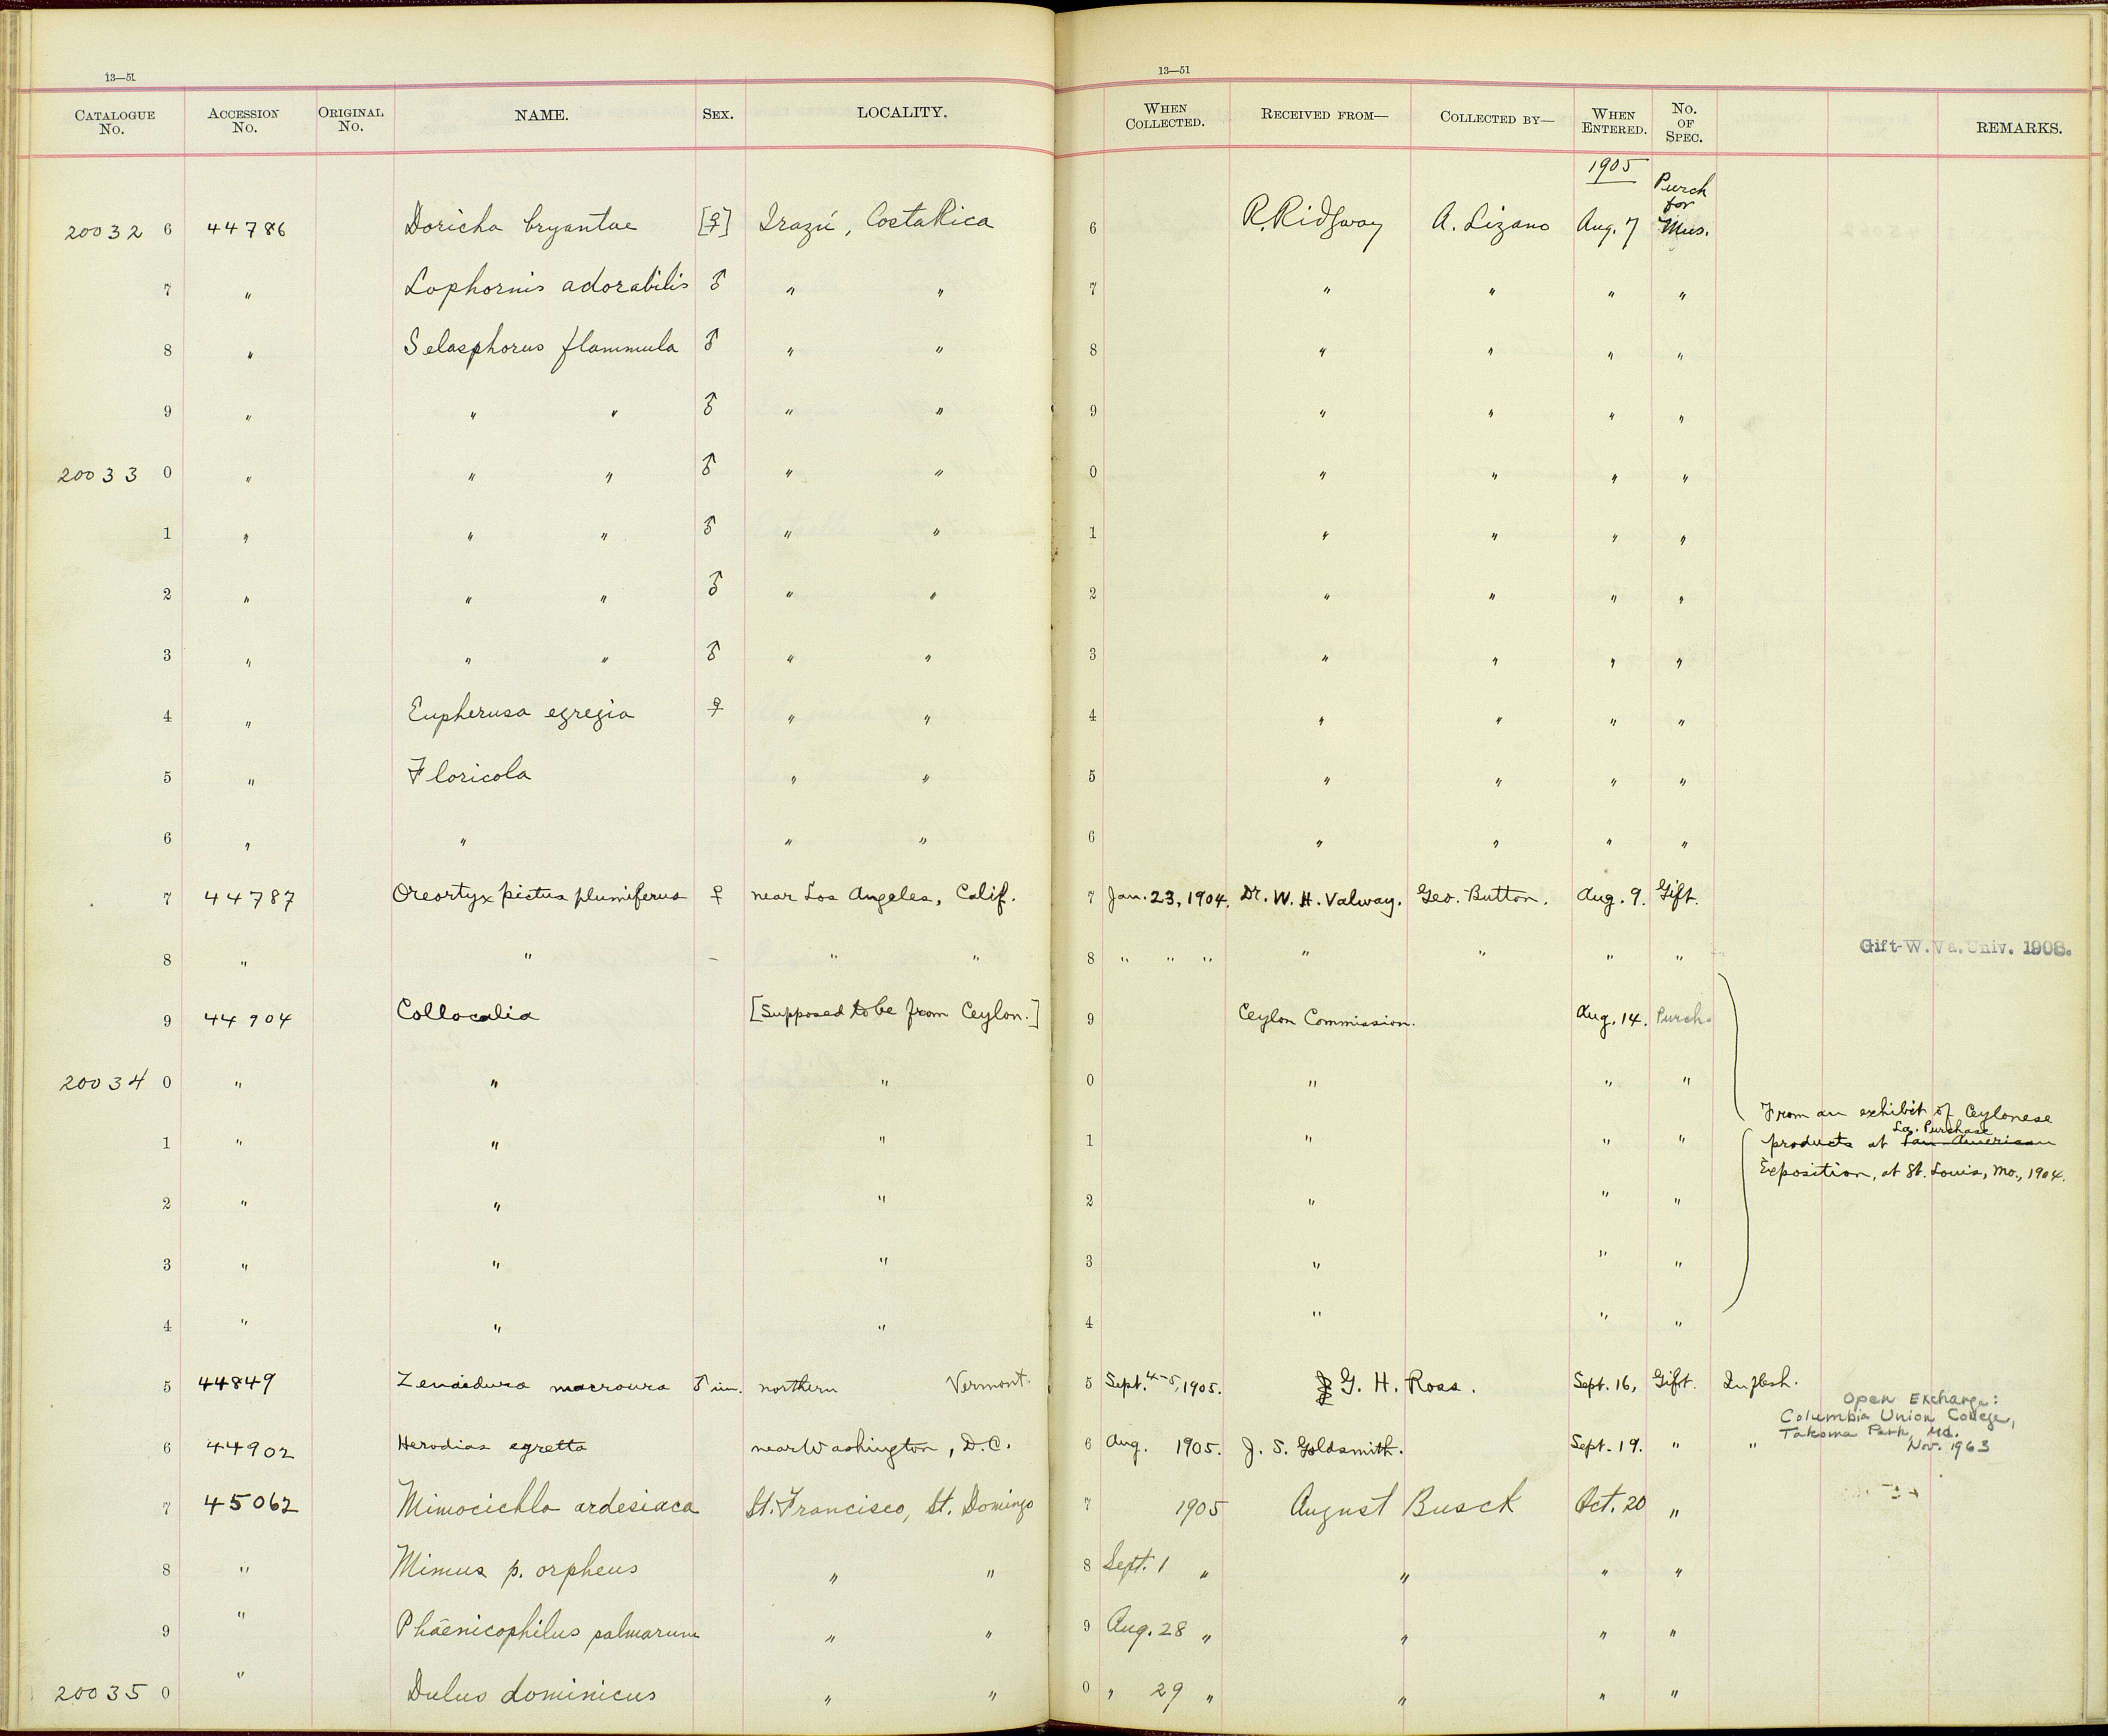 13—51
13—51
CATALOGUE No. ACCESSION No. ORIGINAL No. NAME. SEX. LOCALITY. WHEN COLLECTED. RECEIVED FROM— COLLECTED BY— WHEN ENTERED. No. OF SPEC. REMARKS.
1905
20032 6 44786 Doricha bryantae [♀] Irazú, Costa Rica 6 R. Ridgway A. Lizano Aug. 7 Purch for Mus.
7 " Lophornis adorabilis ♂ " " 7 " " " "
8 " Selasphorus flammula ♂ " " 8 " " " "
9 " " " ♂ " " 9 " " " "
20033 0 " " " ♂ " " 0 " " " "
1 " " " ♂ " " 1 " " " "
2 " " " ♂ " " 2 " " " "
3 " " " ♂ " " 3 " " " "
4 " Eupherusa egregia ♀ " " 4 " " " "
5 " Floricola " " 5 " " " "
6 " " " " 6 " " " "
7 44787 Oreortyx pictus plumiferus ♀ near Los Angeles, Calif. 7 Jan. 23, 1904. Dr. W. H. Valway. Geo. Button. Aug. 9. Gift.
8 " " – " " 8 " " " " " " " Gift-W. Va. Univ. 1908.
9 44904 Collocalia [Supposed to be from Ceylon.] 9 Ceylon Commission. Aug. 14. Purch.
20034 0 " " " 0 " " "
From an exhibit of Ceylonese
1 " " " 1 " " " products at Pan-American La. Purchase
Exposition, at St. Louis, Mo., 1904.
2 " " " 2 " " "
3 " " " 3 " " "
4 " " " 4 " " "
5 44849 Zenaidura macroura ♂ im. northern Vermont. 5 Sept. 4-5, 1905. G. H. Ross. Sept. 16, Gift. In flesh.
Open Exchange:
Columbia Union College,
Takoma Park, Md.
Nov. 1963
6 44902 Herodias egretta near Washington, D.C. 6 Aug. 1905. J. S. Goldsmith. Sept. 19. " "
7 45062 Mimocichla ardesiaca St. Francisco, St. Domingo 7 1905 August Busck Oct. 20 "
8 " Mimus p. orpheus " " 8 Sept. 1 " " " "
9 " Phaenicophilus palmarum " " 9 Aug. 28 " " " "
20035 0 " Dulus dominicus " " 0 " 29 " " " "